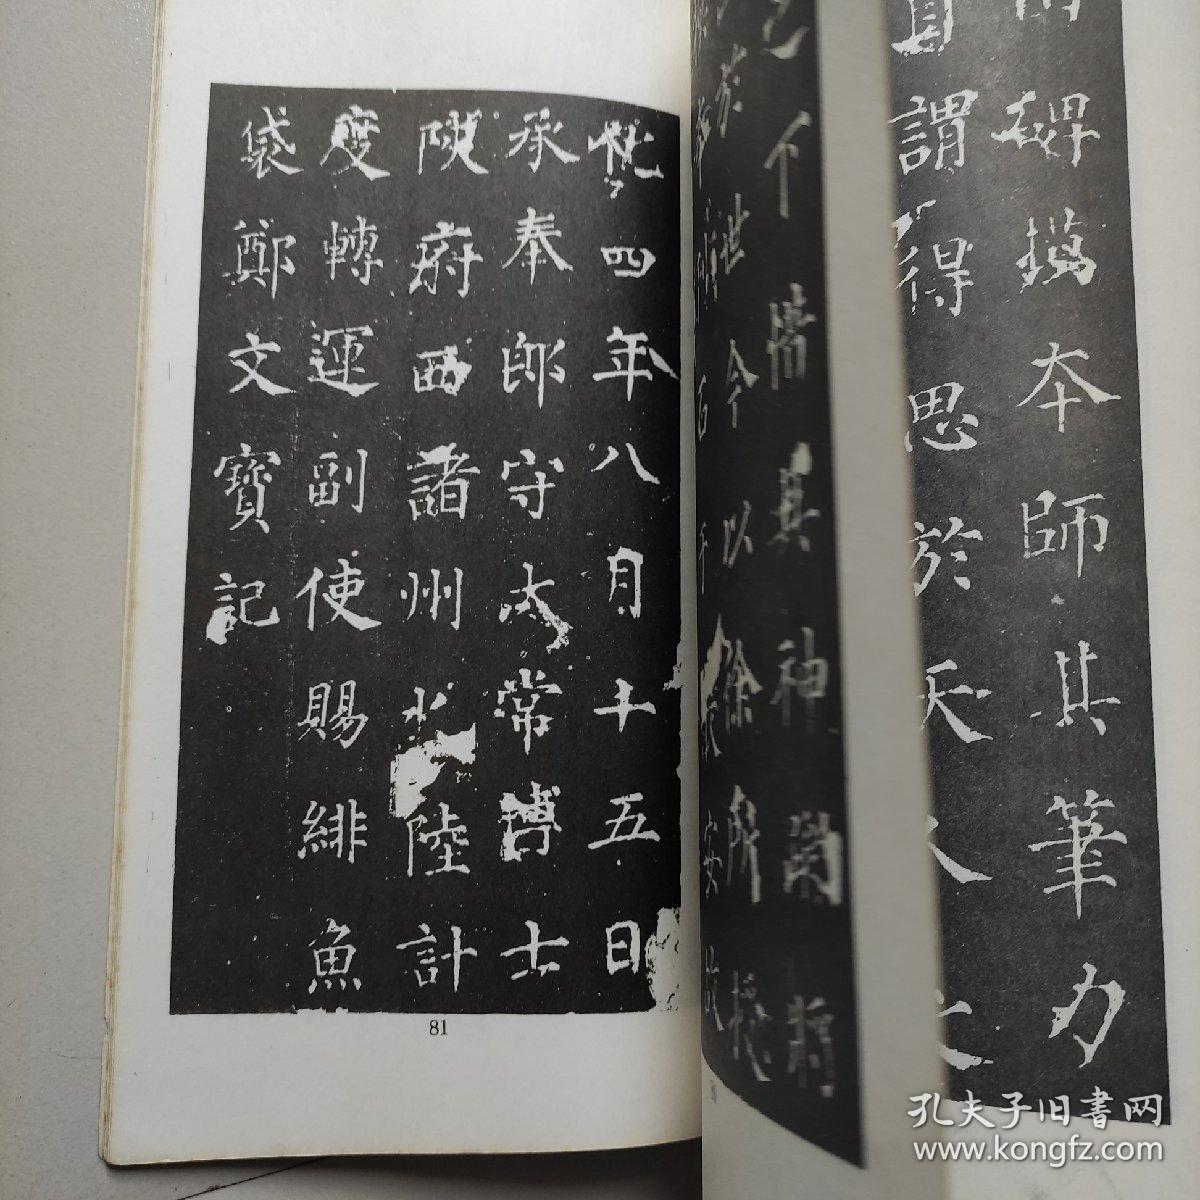 碑摸本師其筆力
謂得思於天人之
下惜其神
世今以徐所授
化四年八月十五日
承奉郎守太常博士
陝府西諸州水陸計
度轉運副使賜緋魚
袋鄭文寶記
81
孔夫子旧书网
www.kongfz.com